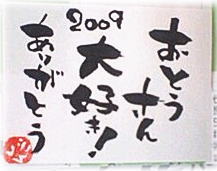 おとうさん
2009
大好き!
ありがとう